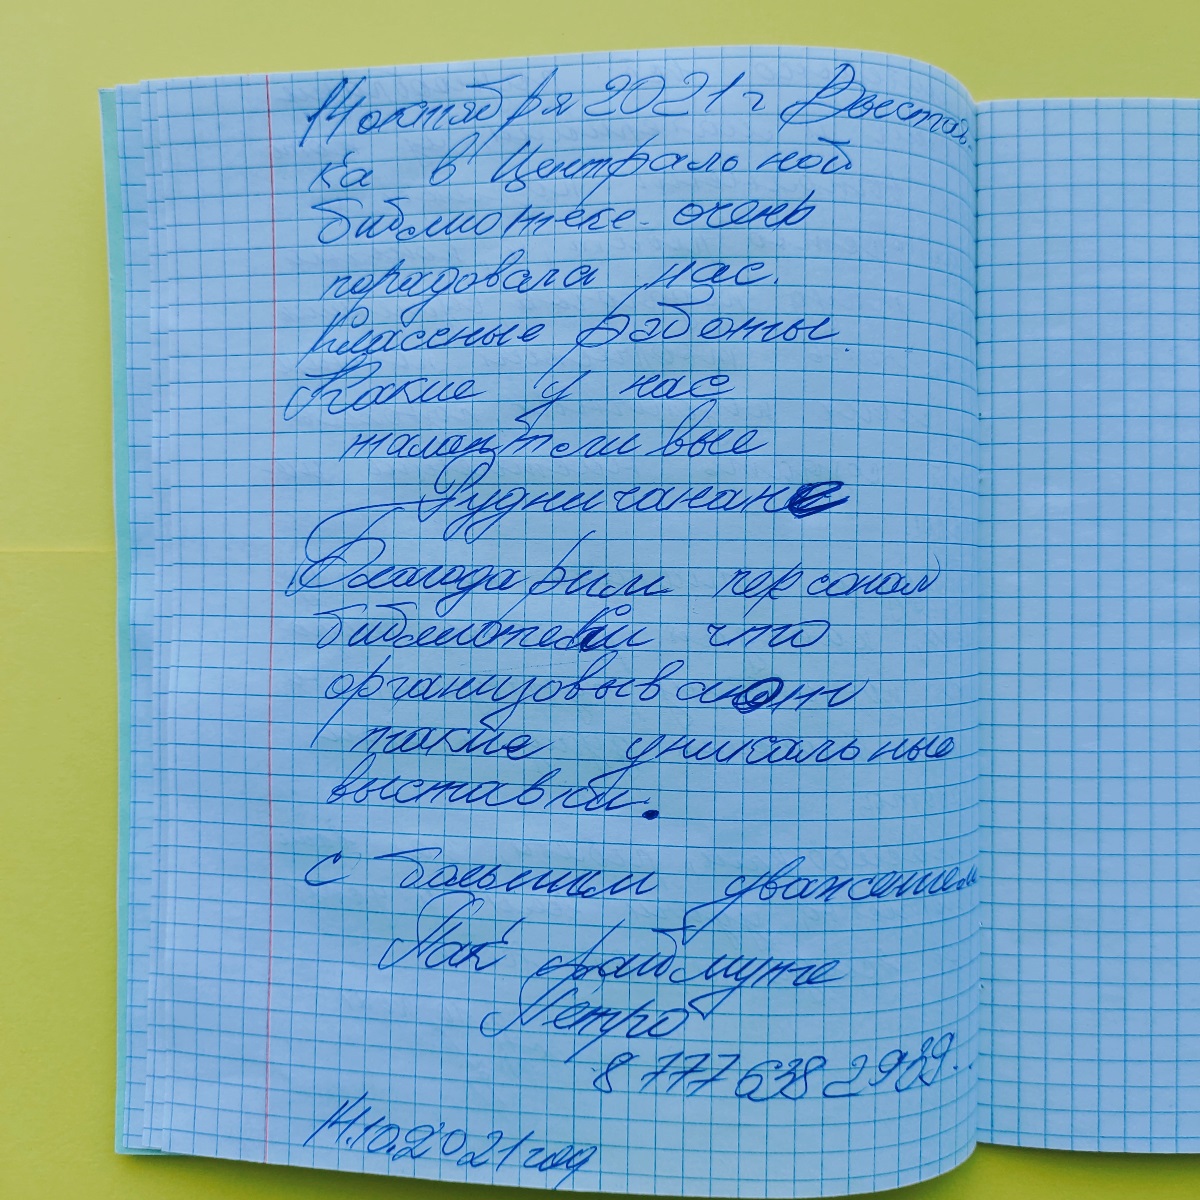 14 октября 2021 г Выстав
ка в Центральной
библиотеке очень
порадовала нас.
Классные работы.
Какие у нас
талантливые
Рудничанане
Благодарим персонал
библиотеки что
организовывают
такие уникальные
выставки.
с большим уважением
Пак
Петро
8 777 638 2989..
14.10.2021 год